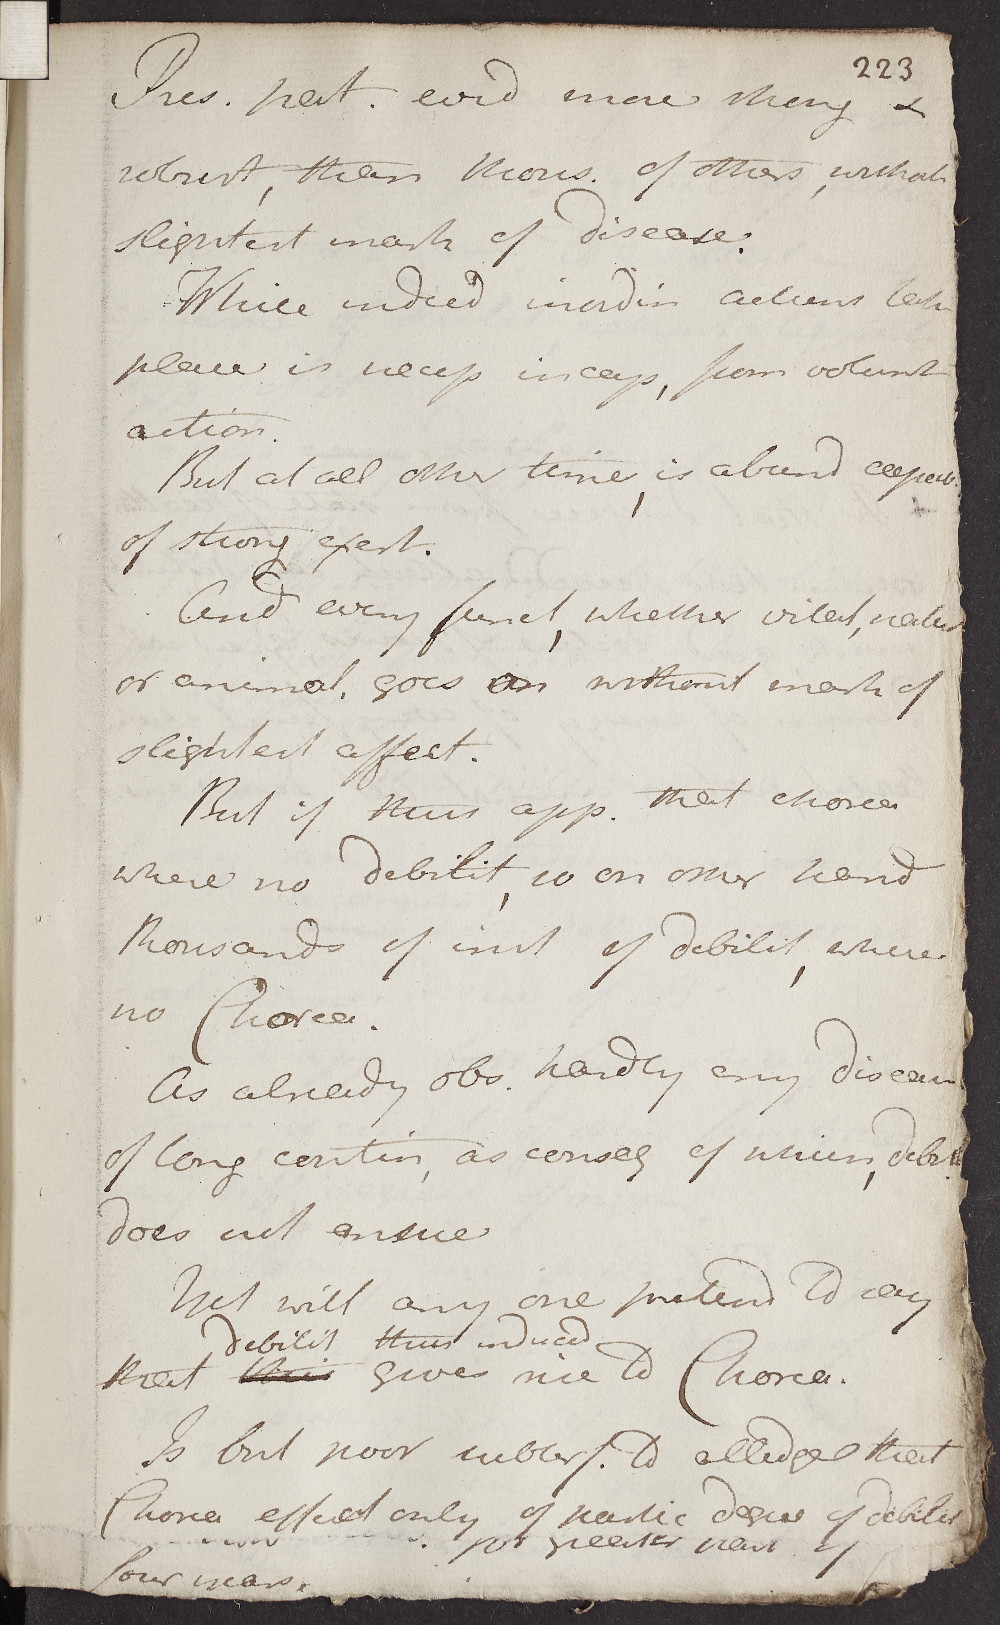 223
Pres. pat. evid more strong &
robust, than thous. of others, without
slightest mark of disease.
While indeed inordin actions take
place is necess incap, from volunt
action.
But at all other time, is abund capab
of strong exert.
And every funct, whether vital, natur
or animal, goes on without mark of
slightest affect.
But if thus app. that chorea
where no debilit, so on other hand
thousands of inst of debilit, where
no Chorea.
As already obs. hardly any disease
of long contin, as conseq of which, debil
does not ensue
Yet will any one pretend to say
debilit thus induced
that this gives rise to Chorea.
Is but poor subterf. to alledge that
Chorea effect only of partic degree of debilit
for greater part of
four years.